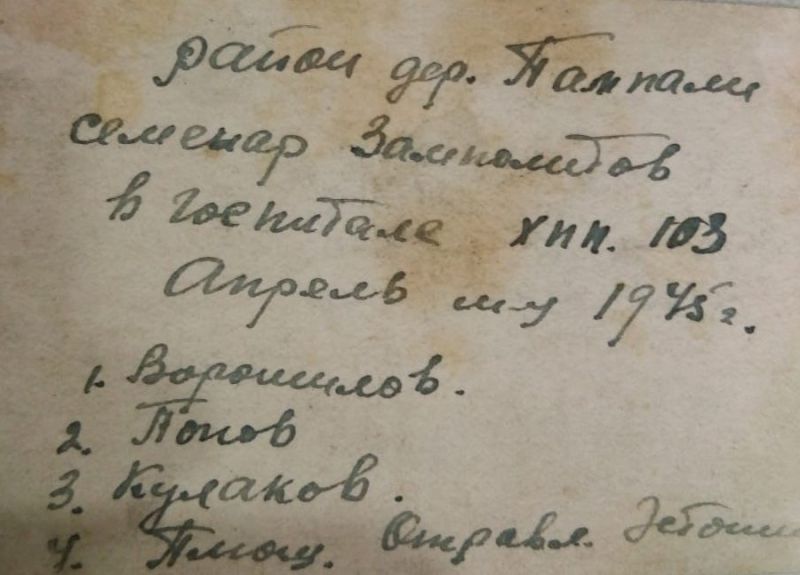 район дер. Пампали
семенар Замполитов
в госпитале хпп. 103
Апрель м-у 1945г.
1. Ворошилов.
2. Попов
3. Кулаков.
4. Отравл.